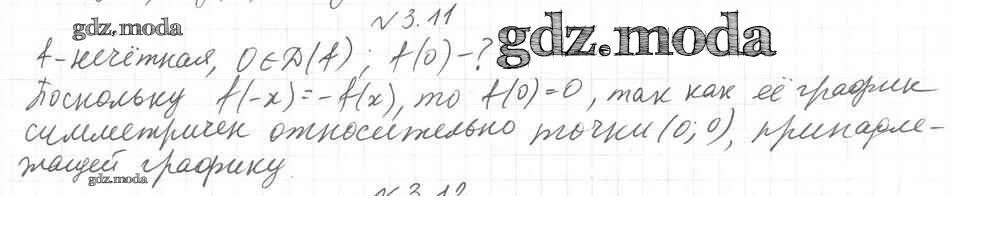 №3.11
gdz.moda
gdz.moda
f-нечётная, 0∈D(f); f(0)-?
Поскольку f(-x)=-f(x), то f(0)=0, так как её график
симметричен относительно точки (0;0), принадле-
жащей графику.
gdz.moda
№3.12